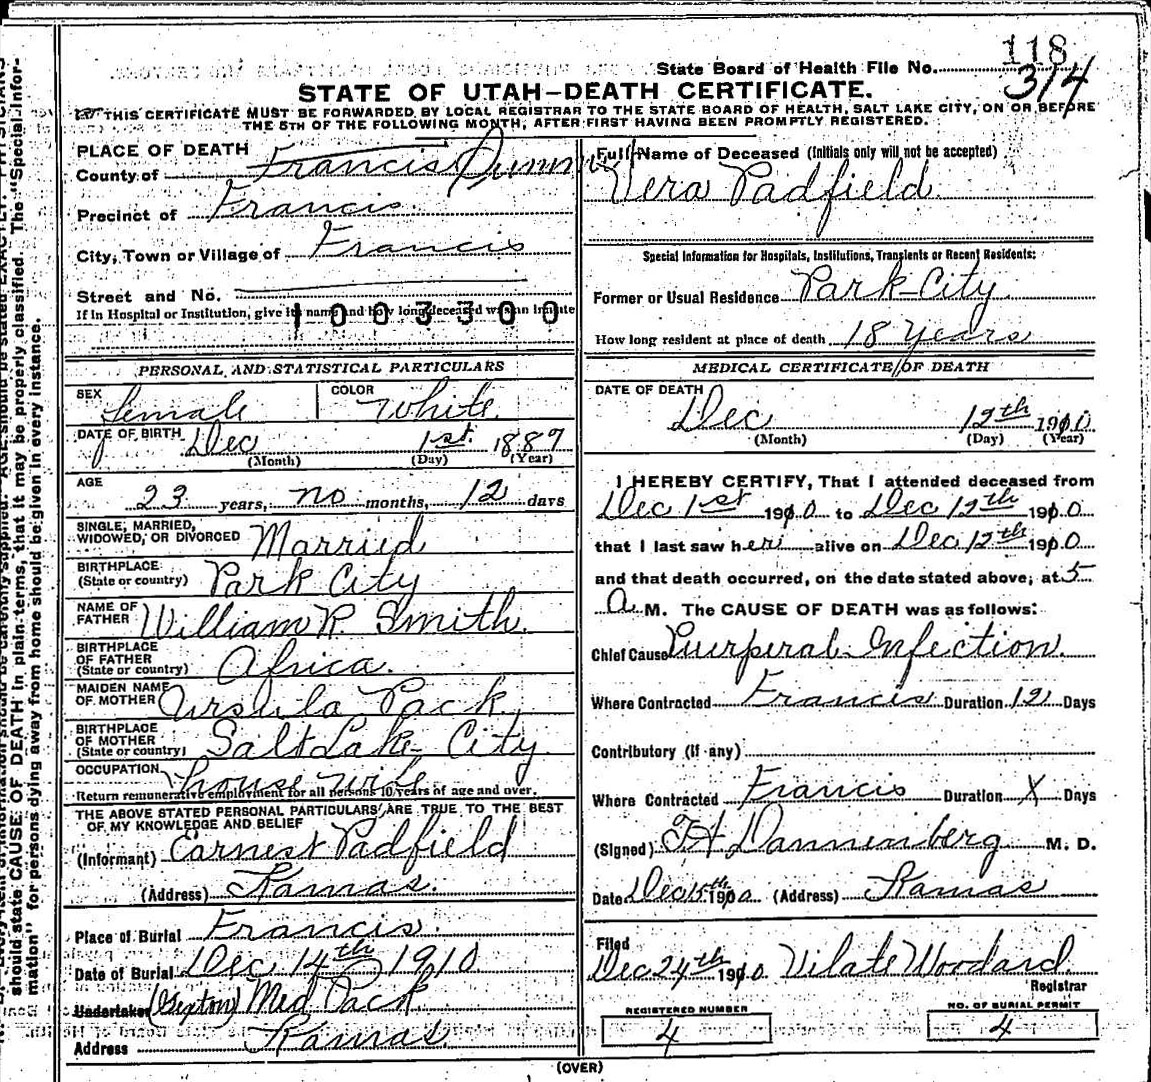 118
State Board of Health File No. 314
STATE OF UTAH–DEATH CERTIFICATE.
THIS CERTIFICATE MUST BE FORWARDED BY LOCAL REGISTRAR TO THE STATE BOARD OF HEALTH, SALT LAKE CITY, ON OR BEFORE
THE 5TH OF THE FOLLOWING MONTH, AFTER FIRST HAVING BEEN PROMPTLY REGISTERED.
PLACE OF DEATH
County of Francis Summit
Precinct of Francis
City, Town or Village of Francis
Street and No.
If in Hospital or Institution, give its name and how long deceased was an inmate
1003300
PERSONAL AND STATISTICAL PARTICULARS
SEX female COLOR White
DATE OF BIRTH Dec 1st. 1887
(Month) (Day) (Year)
AGE
23 years, no months, 12 days
SINGLE, MARRIED,
WIDOWED, OR DIVORCED Married
BIRTHPLACE
(State or country) Park City
NAME OF
FATHER William R. Smith.
BIRTHPLACE
OF FATHER
(State or country) Africa.
MAIDEN NAME
OF MOTHER Ursula Pack
BIRTHPLACE
OF MOTHER
(State or country) Salt Lake City
OCCUPATION house wife
Return remunerative employment for all persons 10 years of age and over.
THE ABOVE STATED PERSONAL PARTICULARS ARE TRUE TO THE BEST
OF MY KNOWLEDGE AND BELIEF
(Informant) Earnest Padfield
(Address) Kamas.
Place of Burial Francis.
Date of Burial Dec 14th 1910
Undertaker (Sexton) Med Pack
Address Kamas.
Full Name of Deceased (Initials only will not be accepted)
Vera Padfield
Special Information for Hospitals, Institutions, Transients or Recent Residents:
Former or Usual Residence Park City
How long resident at place of death 18 years
MEDICAL CERTIFICATE OF DEATH
DATE OF DEATH
Dec 12th 1910
(Month) (Day) (Year)
I HEREBY CERTIFY, That I attended deceased from
Dec 1st 1910 to Dec 12th 1910
that I last saw her alive on Dec 12th 1910
and that death occurred, on the date stated above, at 5
A M. The CAUSE OF DEATH was as follows:
Chief Cause Puerperal Infection
Where Contracted Francis Duration 12 Days
Contributory (if any)
Where Contracted Francis Duration X Days
(Signed) Dannenberg M. D.
Date Dec 15th 1910 (Address) Kamas
Filed
Dec 24th 1910 Vilate Woodard
Registrar
REGISTERED NUMBER
4
NO. OF BURIAL PERMIT
4
(OVER)
should state CAUSE OF DEATH in plain terms, that it may be properly classified. The "Special Infor-
mation" for persons dying away from home should be given in every instance.